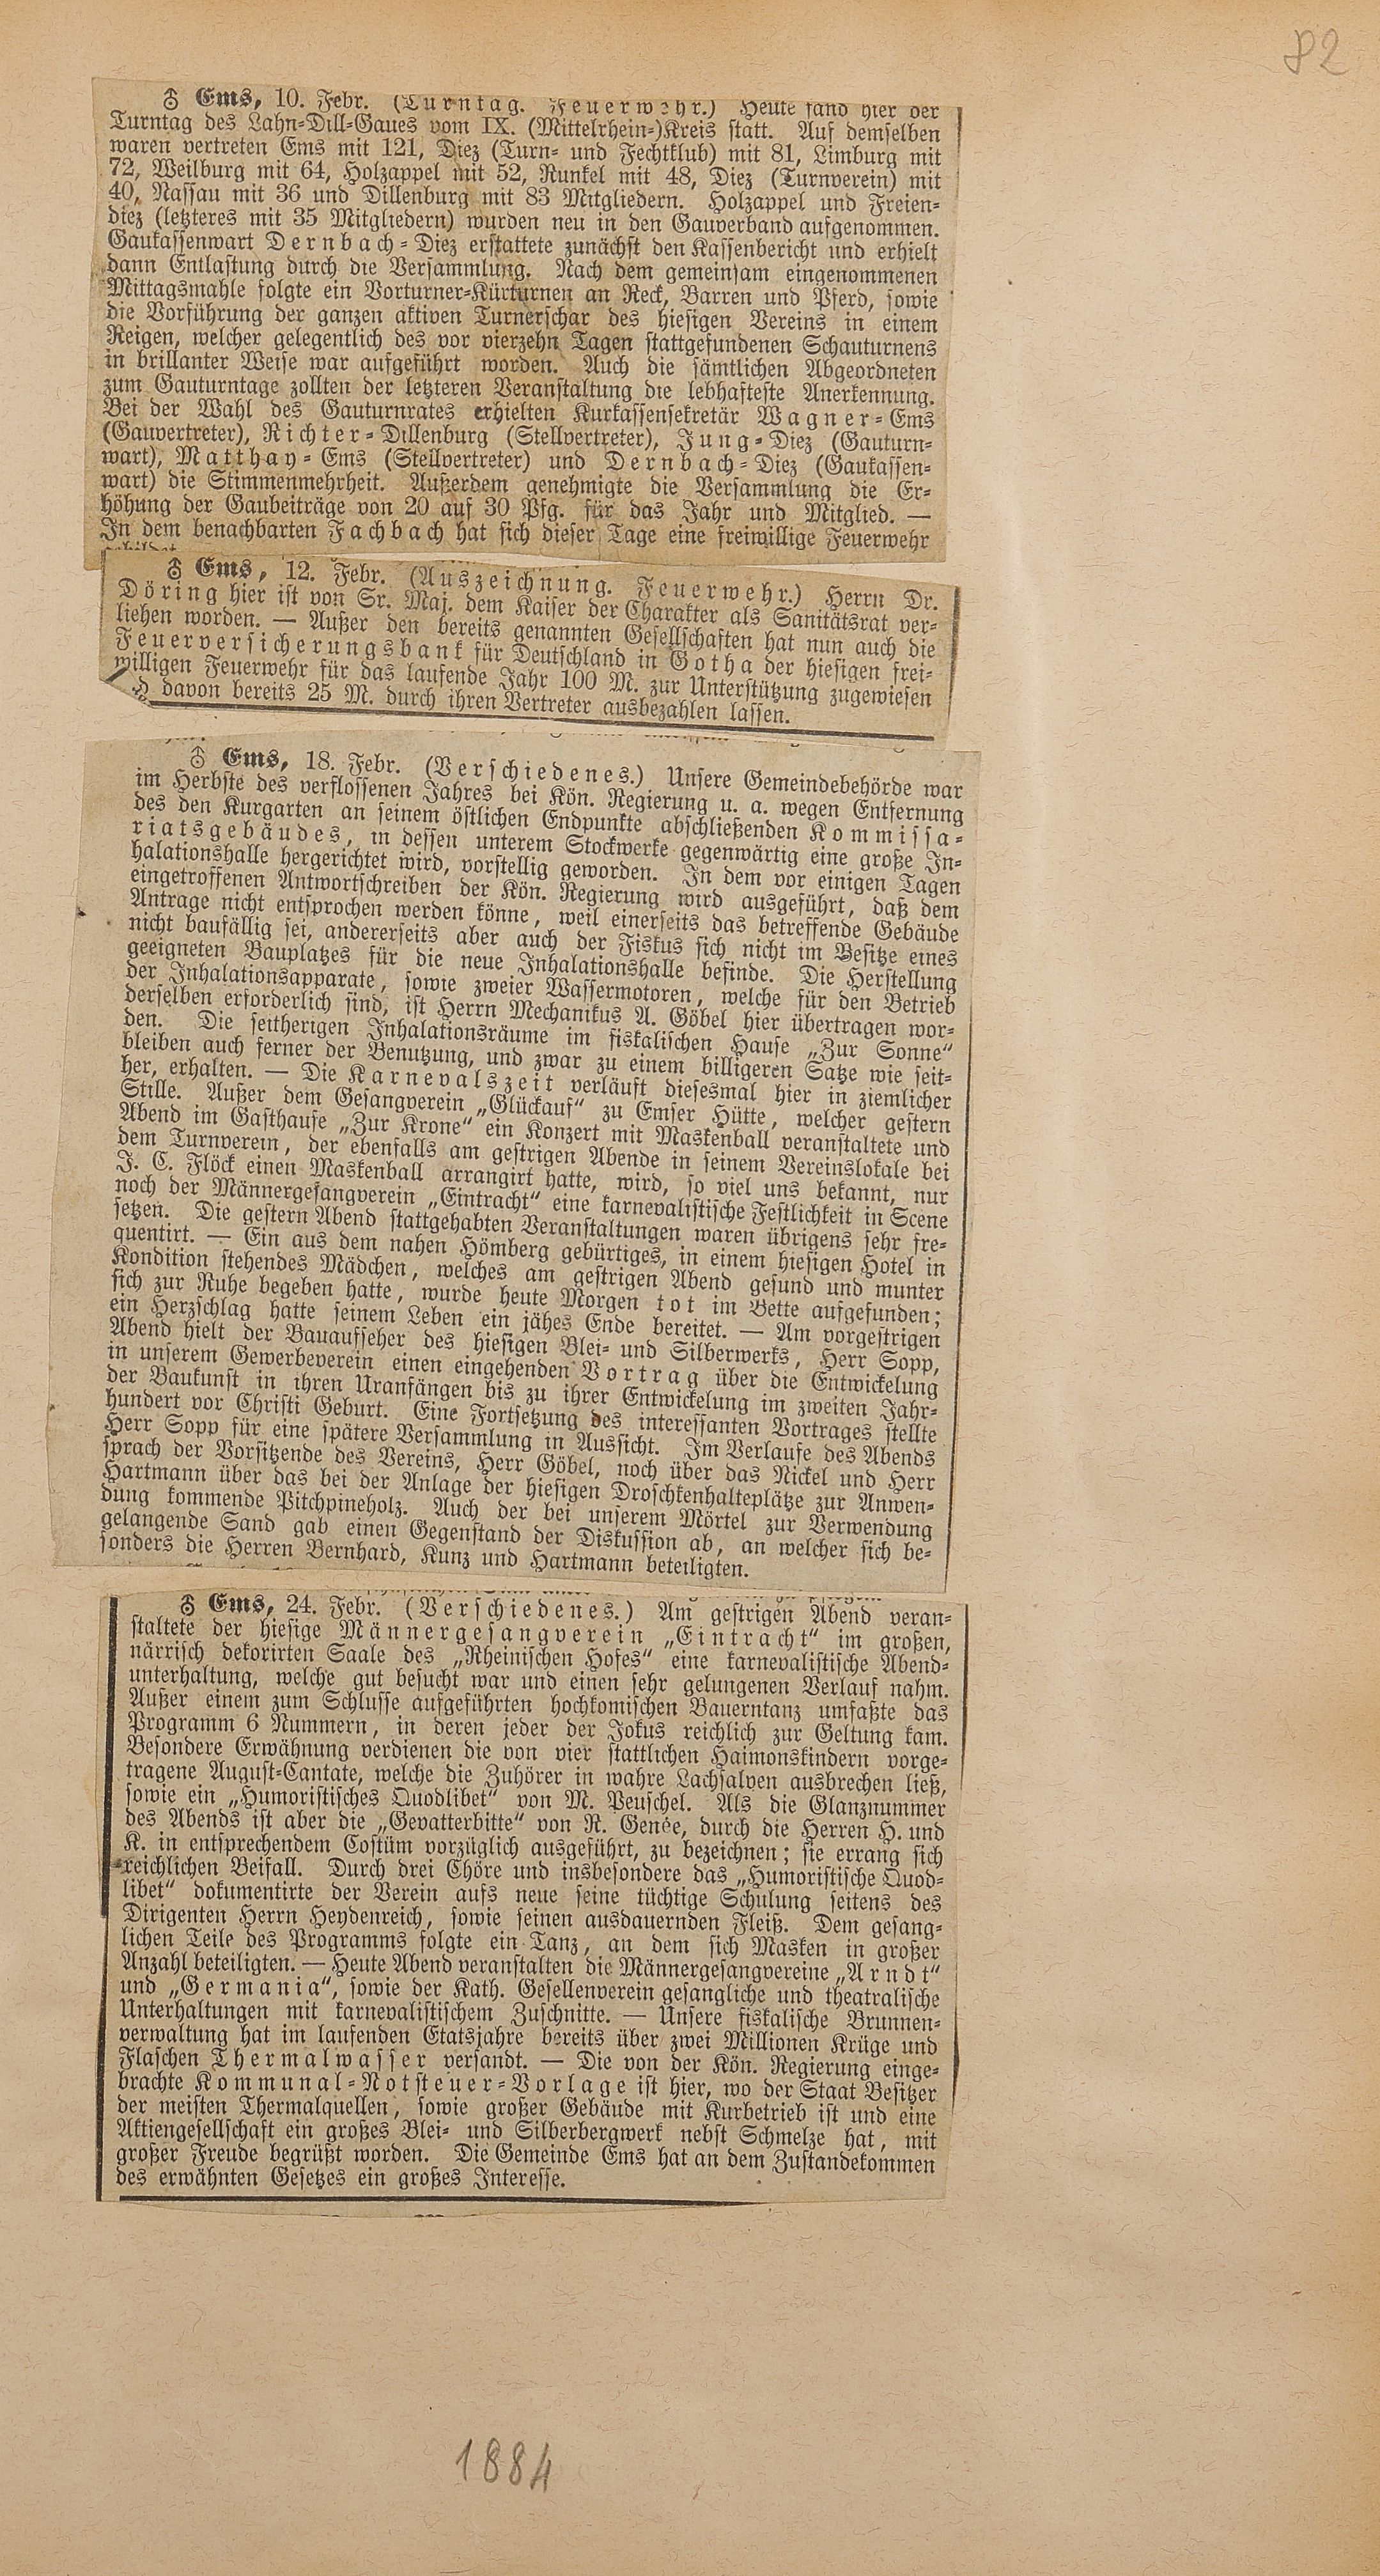 82
♁ Ems, 10. Febr. (Turntag. Feuerwehr.) Heute fand hier der
Turntag des Lahn-Dill-Gaues vom IX. (Mittelrhein-)Kreis statt. Auf demselben
waren vertreten Ems mit 121, Diez (Turn- und Fechtklub) mit 81, Limburg mit
72, Weilburg mit 64, Holzappel mit 52, Runkel mit 48, Diez (Turnverein) mit
40, Nassau mit 36 und Dillenburg mit 83 Mitgliedern. Holzappel und Freien-
diez (letzteres mit 35 Mitgliedern) wurden neu in den Gauverband aufgenommen.
Gaukassenwart Dernbach-Diez erstattete zunächst den Kassenbericht und erhielt
dann Entlastung durch die Versammlung. Nach dem gemeinsam eingenommenen
Mittagsmahle folgte ein Vorturner-Kürturnen an Reck, Barren und Pferd, sowie
die Vorführung der ganzen aktiven Turnerschar des hiesigen Vereins in einem
Reigen, welcher gelegentlich des vor vierzehn Tagen stattgefundenen Schauturnens
in brillanter Weise war aufgeführt worden. Auch die sämtlichen Abgeordneten
zum Gauturntage zollten der letzteren Veranstaltung die lebhafteste Anerkennung.
Bei der Wahl des Gauturnrates erhielten Kurkassensekretär Wagner-Ems
(Gauvertreter), Richter-Dillenburg (Stellvertreter), Jung-Diez (Gauturn-
wart), Matthay-Ems (Stellvertreter) und Dernbach-Diez (Gaukassen-
wart) die Stimmenmehrheit. Außerdem genehmigte die Versammlung die Er-
höhung der Gaubeiträge von 20 auf 30 Pfg. für das Jahr und Mitglied. —
In dem benachbarten Fachbach hat sich dieser Tage eine freiwillige Feuerwehr
gebildet
♁ Ems, 12. Febr. (Auszeichnung. Feuerwehr.) Herrn Dr.
Döring hier ist von Sr. Maj. dem Kaiser der Charakter als Sanitätsrat ver-
liehen worden. — Außer den bereits genannten Gesellschaften hat nun auch die
Feuerversicherungsbank für Deutschland in Gotha der hiesigen frei-
willigen Feuerwehr für das laufende Jahr 100 M. zur Unterstützung zugewiesen
davon bereits 25 M. durch ihren Vertreter ausbezahlen lassen.
♁ Ems, 18. Febr. (Verschiedenes.) Unsere Gemeindebehörde war
im Herbste des verflossenen Jahres bei Kön. Regierung u. a. wegen Entfernung
des den Kurgarten an seinem östlichen Endpunkte abschließenden Kommissa-
riatsgebäudes, in dessen unterem Stockwerke gegenwärtig eine große In-
halationshalle hergerichtet wird, vorstellig geworden. In dem vor einigen Tagen
eingetroffenen Antwortschreiben der Kön. Regierung wird ausgeführt, daß dem
Antrage nicht entsprochen werden könne, weil einerseits das betreffende Gebäude
nicht baufällig sei, andererseits aber auch der Fiskus sich nicht im Besitze eines
geeigneten Bauplatzes für die neue Inhalationshalle befinde. Die Herstellung
der Inhalationsapparate, sowie zweier Wassermotoren, welche für den Betrieb
derselben erforderlich sind, ist Herrn Mechanikus A. Göbel hier übertragen wor-
den. Die seitherigen Inhalationsräume im fiskalischen Hause „Zur Sonne“
bleiben auch ferner der Benutzung, und zwar zu einem billigeren Satze wie seit-
her, erhalten. — Die Karnevalszeit verläuft diesesmal hier in ziemlicher
Stille. Außer dem Gesangverein „Glückauf“ zu Emser Hütte, welcher gestern
Abend im Gasthause „Zur Krone“ ein Konzert mit Maskenball veranstaltete und
dem Turnverein, der ebenfalls am gestrigen Abende in seinem Vereinslokale bei
J. C. Flöck einen Maskenball arrangirt hatte, wird, so viel uns bekannt, nur
noch der Männergesangverein „Eintracht“ eine karnevalistische Festlichkeit in Scene
setzen. Die gestern Abend stattgehabten Veranstaltungen waren übrigens sehr fre-
quentirt. — Ein aus dem nahen Hömberg gebürtiges, in einem hiesigen Hotel in
Kondition stehendes Mädchen, welches am gestrigen Abend gesund und munter
sich zur Ruhe begeben hatte, wurde heute Morgen tot im Bette aufgefunden;
ein Herzschlag hatte seinem Leben ein jähes Ende bereitet. — Am vorgestrigen
Abend hielt der Bauaufseher des hiesigen Blei- und Silberwerks, Herr Sopp,
in unserem Gewerbeverein einen eingehenden Vortrag über die Entwickelung
der Baukunst in ihren Uranfängen bis zu ihrer Entwickelung im zweiten Jahr-
hundert vor Christi Geburt. Eine Fortsetzung des interessanten Vortrages stellte
Herr Sopp für eine spätere Versammlung in Aussicht. Im Verlaufe des Abends
sprach der Vorsitzende des Vereins, Herr Göbel, noch über das Nickel und Herr
Hartmann über das bei der Anlage der hiesigen Droschkenhalteplätze zur Anwen-
dung kommende Pitchpineholz. Auch der bei unserem Mörtel zur Verwendung
gelangende Sand gab einen Gegenstand der Diskussion ab, an welcher sich be-
sonders die Herren Bernhard, Kunz und Hartmann beteiligten.
♁ Ems, 24. Febr. (Verschiedenes.) Am gestrigen Abend veran-
staltete der hiesige Männergesangverein „Eintracht“ im großen,
närrisch dekorirten Saale des „Rheinischen Hofes“ eine karnevalistische Abend-
unterhaltung, welche gut besucht war und einen sehr gelungenen Verlauf nahm.
Außer einem zum Schlusse aufgeführten hochkomischen Bauerntanz umfaßte das
Programm 6 Nummern, in deren jeder der Jokus reichlich zur Geltung kam.
Besondere Erwähnung verdienen die von vier stattlichen Haimonskindern vorge-
tragene August-Cantate, welche die Zuhörer in wahre Lachsalven ausbrechen ließ,
sowie ein „Humoristisches Quodlibet“ von M. Peuschel. Als die Glanznummer
des Abends ist aber die „Gevatterbitte“ von R. Genée, durch die Herren H. und
K. in entsprechendem Costüm vorzüglich ausgeführt, zu bezeichnen; sie errang sich
reichlichen Beifall. Durch drei Chöre und insbesondere das „Humoristische Quod-
libet“ dokumentirte der Verein aufs neue seine tüchtige Schulung seitens des
Dirigenten Herrn Heydenreich, sowie seinen ausdauernden Fleiß. Dem gesang-
lichen Teile des Programms folgte ein Tanz, an dem sich Masken in großer
Anzahl beteiligten. — Heute Abend veranstalten die Männergesangvereine „Arndt“
und „Germania“, sowie der Kath. Gesellenverein gesangliche und theatralische
Unterhaltungen mit karnevalistischem Zuschnitte. — Unsere fiskalische Brunnen-
verwaltung hat im laufenden Etatsjahre bereits über zwei Millionen Krüge und
Flaschen Thermalwasser versandt. — Die von der Kön. Regierung einge-
brachte Kommunal-Notsteuer-Vorlage ist hier, wo der Staat Besitzer
der meisten Thermalquellen, sowie großer Gebäude mit Kurbetrieb ist und eine
Aktiengesellschaft ein großes Blei- und Silberbergwerk nebst Schmelze hat, mit
großer Freude begrüßt worden. Die Gemeinde Ems hat an dem Zustandekommen
des erwähnten Gesetzes ein großes Interesse.
1884